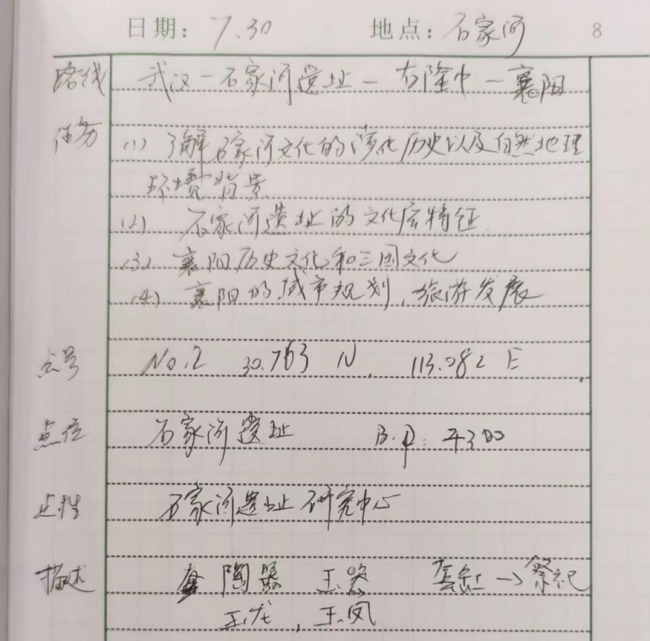 日期: 7.30 地点: 石家河 8
路线 武汉-石家河遗址-古隆中-襄阳
任务 (1) 了解石家河文化的演化历史以及自然地理
环境背景
(2) 石家河遗址的文化层特征
(3) 襄阳历史文化和三国文化
(4) 襄阳的城市规划,旅游发展
点号 No.2 30.763 N, 113.082 E
点位 石家河遗址 B.P: 4300
点性 石家河遗址研究中心
描述 陶器 玉器 → 祭祀
玉龙, 玉凤